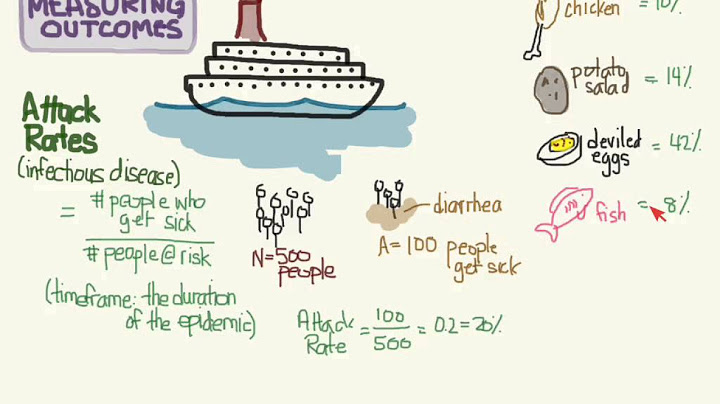 MEASURING
OUTCOMES
Attack
Rates
(infectious disease)
= # people who
get sick
# people @ risk
(timeframe: the duration
of the epidemic)
N=500
people
diarrhea
A=100 people
get sick
Attack
Rate = 100/500 = 0.2 = 20%
chicken = 10%
potato
salad = 14%
deviled
eggs = 42%
fish = 8%